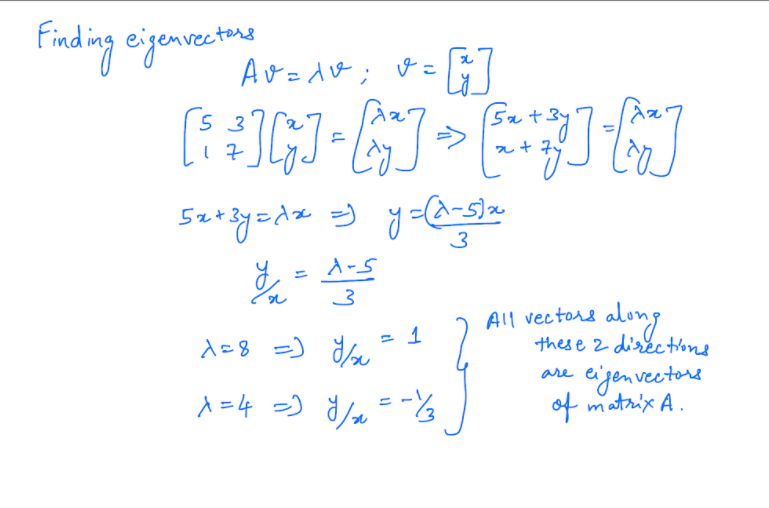 Finding eigenvectors
Av = λv ; v = [x y]
[5 3 1 7] [x y] = [λx λy] ⇒ [5x + 3y x + 7y] = [λx λy]
5x + 3y = λx ⇒ y = (λ-5)x / 3
y/x = λ-5 / 3
λ = 8 ⇒ y/x = 1
λ = 4 ⇒ y/x = -1/3
All vectors along
these 2 directions
are eigenvectors
of matrix A.